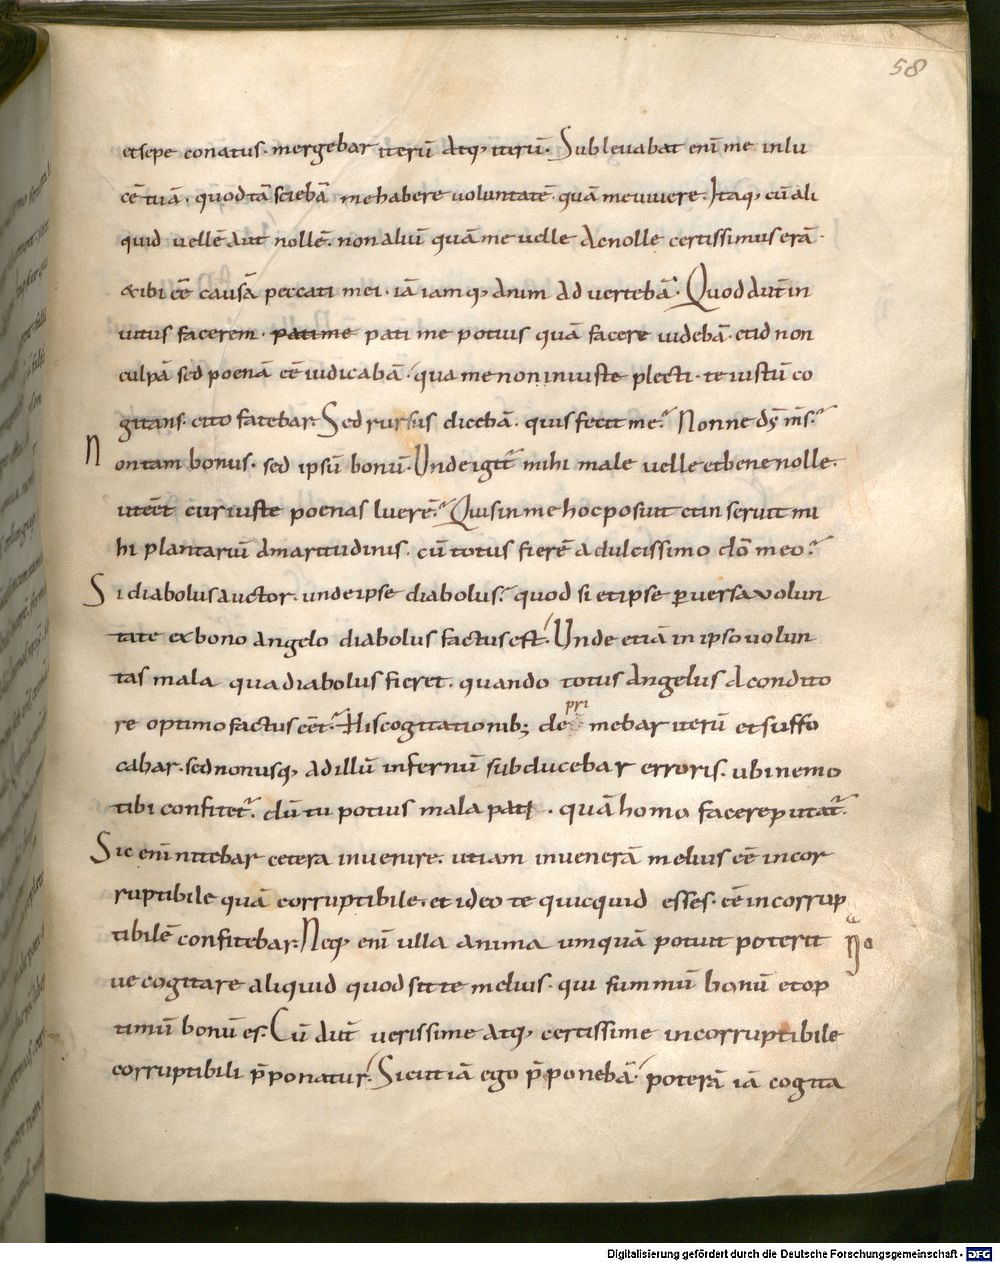 58
et sepe conatus· mergebar iterū Atq; iterū· Subleuabat enī me in lu
cē tuā· quod tā sciebā me habere voluntatē quā me vivere. Itaq; cū ali
quid vellē aut nollē. non aliū quā me velle Ac nolle certissimus erā·
& ibi eē causā peccati mei· iā iamq; Anim Advertebā· Quod autē in
vitus facerem· patime pati me potius quā facere videbā· et id non
culpā sed poenā eē iudicabā· qua me non iniuste plecti· te iustū co
gitans· cito fatebar. Sed rursus dicebā· quis fecit me? Nonne dš mš?
Non tam bonus· sed ipsū bonū· Unde igit̄ mihi male velle et bene nolle·
ut eēt cur iuste poenas luerē? Quis in me hoc posuit et inseruit mi
hi plantariū Amaritudinis· cū totus fierē A dulcissimo dō meo?
Si diabolus auctor· unde ipse diabolus? quod si et ipse p̱versa volun
tate ex bono Angelo diabolus factus est· Unde etiā in ipso volun
tas mala qua diabolus fieret· quando totus Angelus A condito
re optimo factus eēt? His cogitationib; de mebar iterū et suffo
pri
cabar· sed non usq; Ad illū infernū subducebar erroris· ubi nemo
tibi confitet̄· dū tu potius mala pati· quā homo facere putat̄·
Sic enī nitebar cetera invenire· ut iam invenerā melius eē incor
ruptibile quā corruptibile· et ideo te quicquid esses· eē incorrup
tibilē confitebar. Neq; enī ulla anima umquā potuit poterit
ve cogitare aliquid quod sit te melius· qui summū bonū et op
timū bonū es. Cū aut̄ verissime Atq; certissime incorruptibile
corruptibili p̄ponatur· Sicut iā ego p̄ponebā· poterā iā cogita
Digitalisierung gefördert durch die Deutsche Forschungsgemeinschaft - DFG